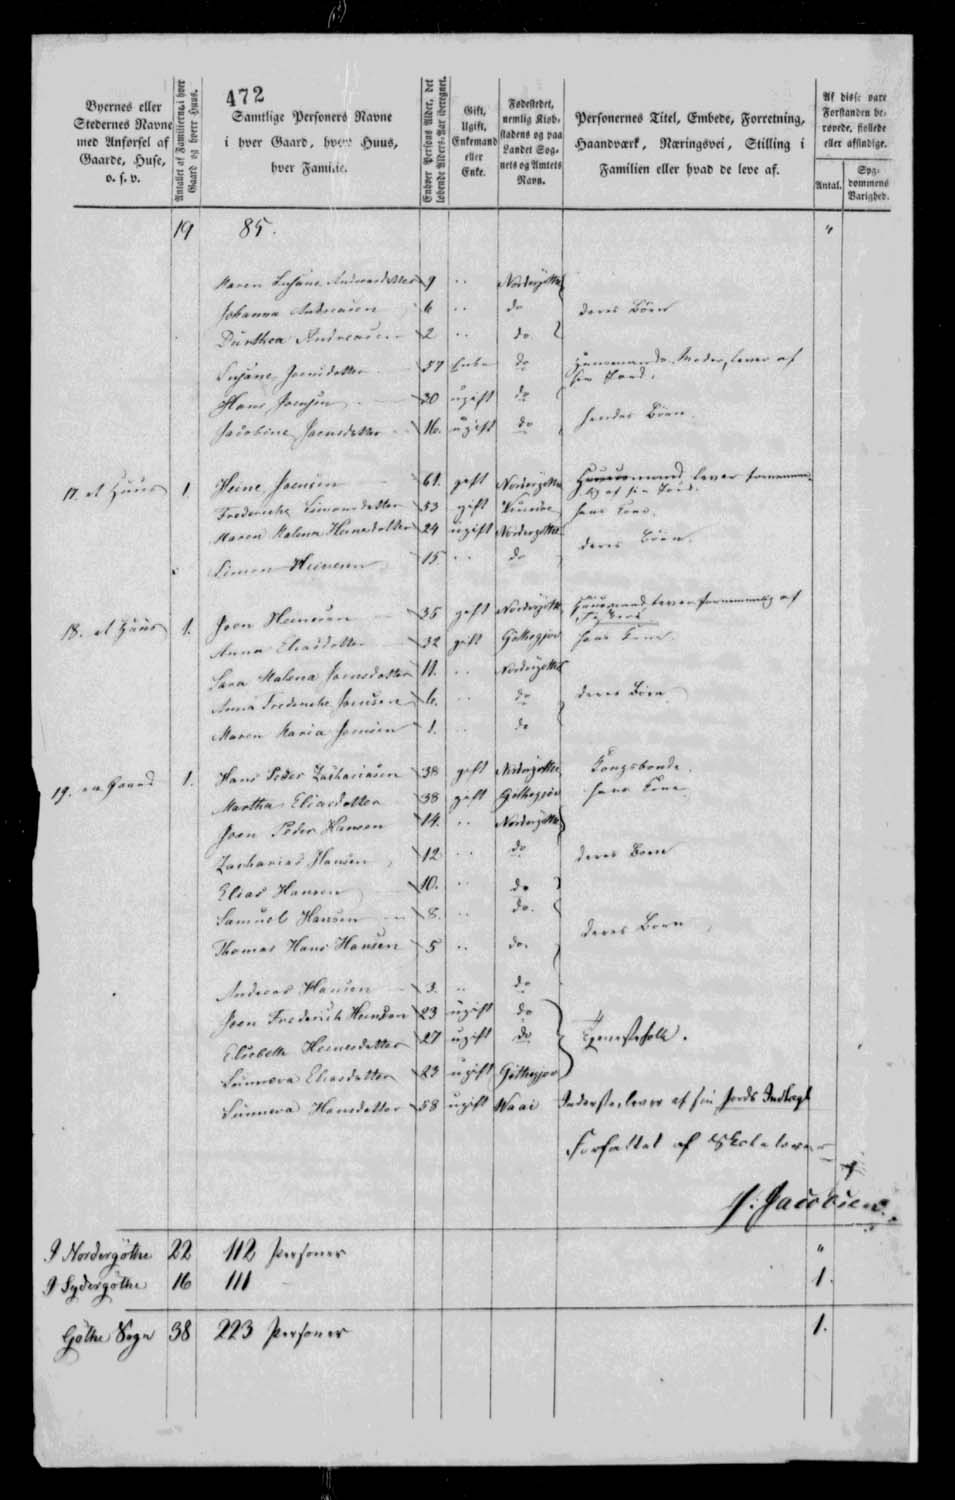 472
Byernes eller Stedernes Navne med Anførsel af Gaarde, Huse, o. s. v.
Antallet af Familierne i hver Gaard og hvert Huus.
Samtlige Personers Navne i hver Gaard, hvert Huus, hver Familie.
Enhver Persons Alder, det løbende Alders-Aar iberegnet.
Gift, Ugift, Enkemand eller Enke.
Fødestedet, nemlig Kiøbstadens og paa Landet Sognets og Amtets Navn.
Personernes Titel, Embede, Forretning, Haandværk, Næringsvei, Stilling i Familien eller hvad de leve af.
Af disse vare Forstanden berøvede, fiollede eller afsindige.
Antal.
Sygdommens Varighed.
19 85. "
Maren Susane Andreasdatter 9 .. Nordergøthe
Johanna Andreasen 6 .. do deres Børn
Durthea Andreasen 2 .. do.
Susane Joensdatter 57 Enke do Huusmands Moder, lever af sin Jord.
Hans Joensen 20 ugift do
Jacobine Joensdatter 16. ugift do hendes Børn.
17. et Huus 1. Heine Joensen 61. gift Nordergøthe Huusmand lever fornemmelig af sin Jord.
Frederiche Simonsdatter 53 gift hans Kone.
Maren Malena Heinesdatter 24 ugift Nordergøthe deres Børn.
Simon Heinesen 15 .. do
18. et Huus 1. Joen Heinesen 35 gift Nordergøthe Huusmand, lever fornemmelig af
Anna Eliasdatter 32 gift Gøthegjov hans Kone.
Sara Malena Joensdatter 11. .. Nordergøthe
Anna Frederiche Joensen 6. .. do deres Børn
Maren Maria Joensen 1. .. do
19. en Gaard 1. Hans Peder Zachariasen 38 gift Nordergøthe Kongsbonde.
Martha Eliasdatter 38 gift Gøthegjov hans Kone
Joen Peder Hansen 14. .. Nordergøthe
Zacharias Hansen 12 .. do deres Børn
Elias Hansen 10. .. do
Samuel Hansen 8. .. do.
Thomas Hans Hansen 5 .. do. deres Børn
Andreas Hansen 3. .. do
Joen Frederich Heinesen 23 ugift do
Elsebeth Heinesdatter 27 ugift do Tjenestefolk.
Sunneva Eliasdatter 23 ugift Gøthegjov
Sunneva Hansdatter 58 ugift Waai Inderste, lever af sin Jords Indtægt
Forfattet af
J. Jacobsen.
I Nordergøthe 22 112 Personer "
I Sydergøthe 16 111 1.
Gøthe Sogn 38 223 Personer 1.